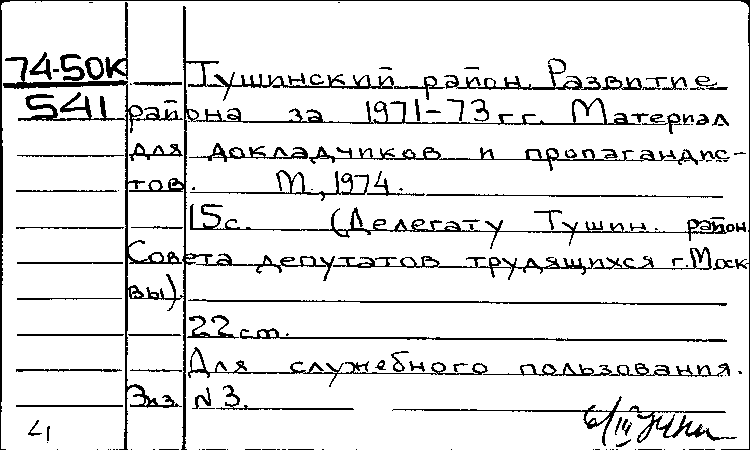 74-50К Тушинский район. Развитие
541 района за 1971-73 гг. Материал
для докладчиков и пропагандис-
тов. М., 1974.
15с. (Делегату Тушин. район.
Совета депутатов трудящихся г. Моск
вы).
22 см.
Для служебного пользования.
Экз. N 3.